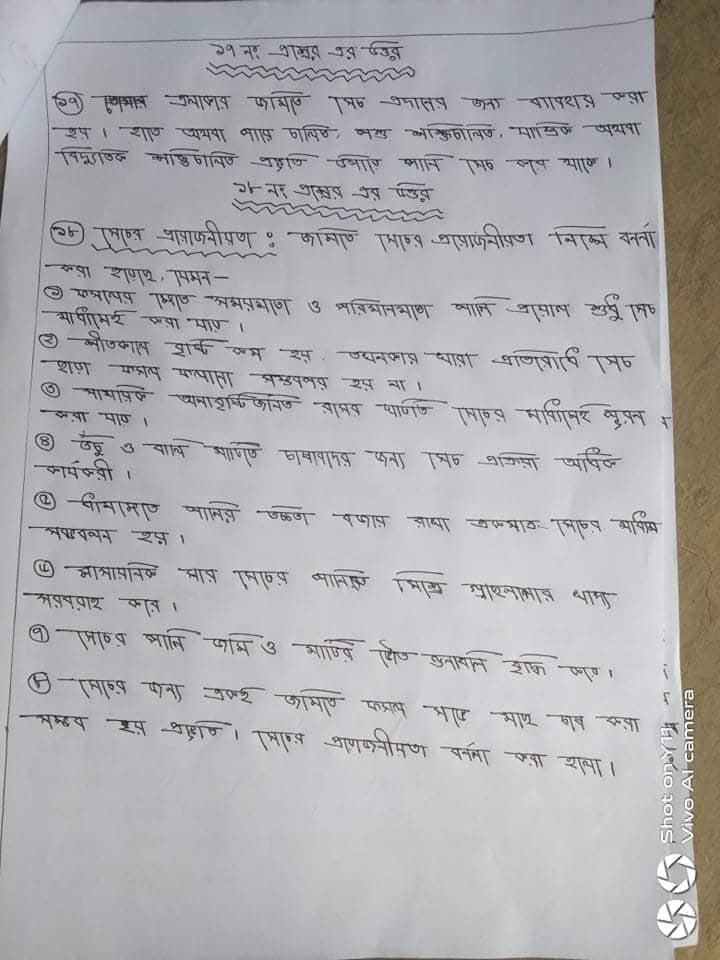 ১৭ নং প্রশ্নের এর উত্তর
১৭ এলাকার জমিতে সেচ প্রদানের জন্য ব্যবহার করা
হয়। হাত অথবা পায়ে চালিত, পশু শক্তিচালিত, যান্ত্রিক অথবা
বিদ্যুতিক শক্তিচালিত প্রভৃতি উপায়ে পানি সেচ করে থাকে।
১৮ নং প্রশ্নের এর উত্তর
১৮ সেচের প্রয়োজনীয়তা : জমিতে সেচের প্রয়োজনীয়তা নিম্নে বর্ননা
করা হয়েছে, যেমন—
১ ফসলের ক্ষেতে সময়মতো ও পরিমানমতো পানি প্রয়োগ শুধু সেচ
মাধ্যমেই করা যায়।
২ শীতকালে বৃষ্টি কম হয়, তখনকার খরা প্রতিরোধি সেচ
ছাড়া ফসল ফলানো সম্ভবপর হয় না।
৩ সাময়িক অনাবৃষ্টিজনিত রসের ঘাটতি সেচের মাধ্যমেই পূরন
করা যায়।
৪ উঁচু ও বালি মাটিতে চাষাবাদের জন্য সেচ প্রক্রিয়া অধিক
কার্যকরী।
৫ পানির উচ্চতা বজায় রাখা একমাত্র সেচের মাধ্যমে
হয়।
৬ রাসায়নিক সার সেচের পানির গাছপালার খাদ্য
সরবরাহ করে।
৭ সেচের পানি জমি ও মাটির ভৌত গুনাবলি বৃদ্ধি করে।
৮ সেচের জন্য একই জমিতে ফসল সাথে মাছ চাষ করা
সম্ভব হয় প্রভৃতি। সেচের প্রয়োজনীয়তা বর্ননা করা হলো।
Shot on Y11
Vivo AI camera